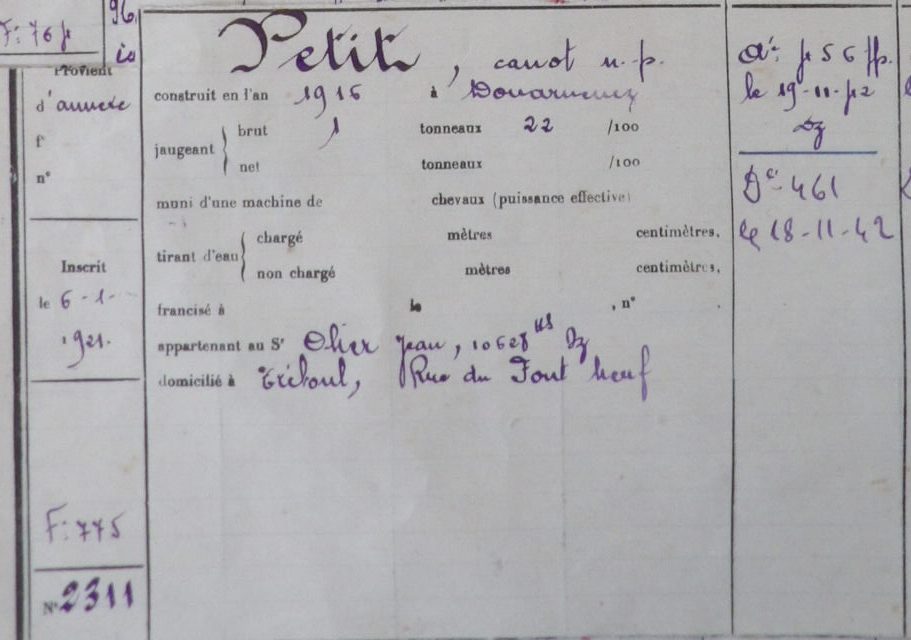 F: 76
96
Provient
d'annexe
f°
n°
Inscrit
le 6-1-
1921.
F: 775
N° 2311
Petit, canot n.p.
construit en l'an 1915 à Douarnenez
jaugeant { brut 1 tonneaux 22 /100
net tonneaux /100
muni d'une machine de chevaux (puissance effective)
tirant d'eau { chargé mètres centimètres,
non chargé mètres centimètres,
francisé à le , n° .
appartenant au Sr Olier Jean, Dz
domicilié à Tréboul, Rue du Font neuf
le 19-11-
Dz
Dc 461
le 18-11-42